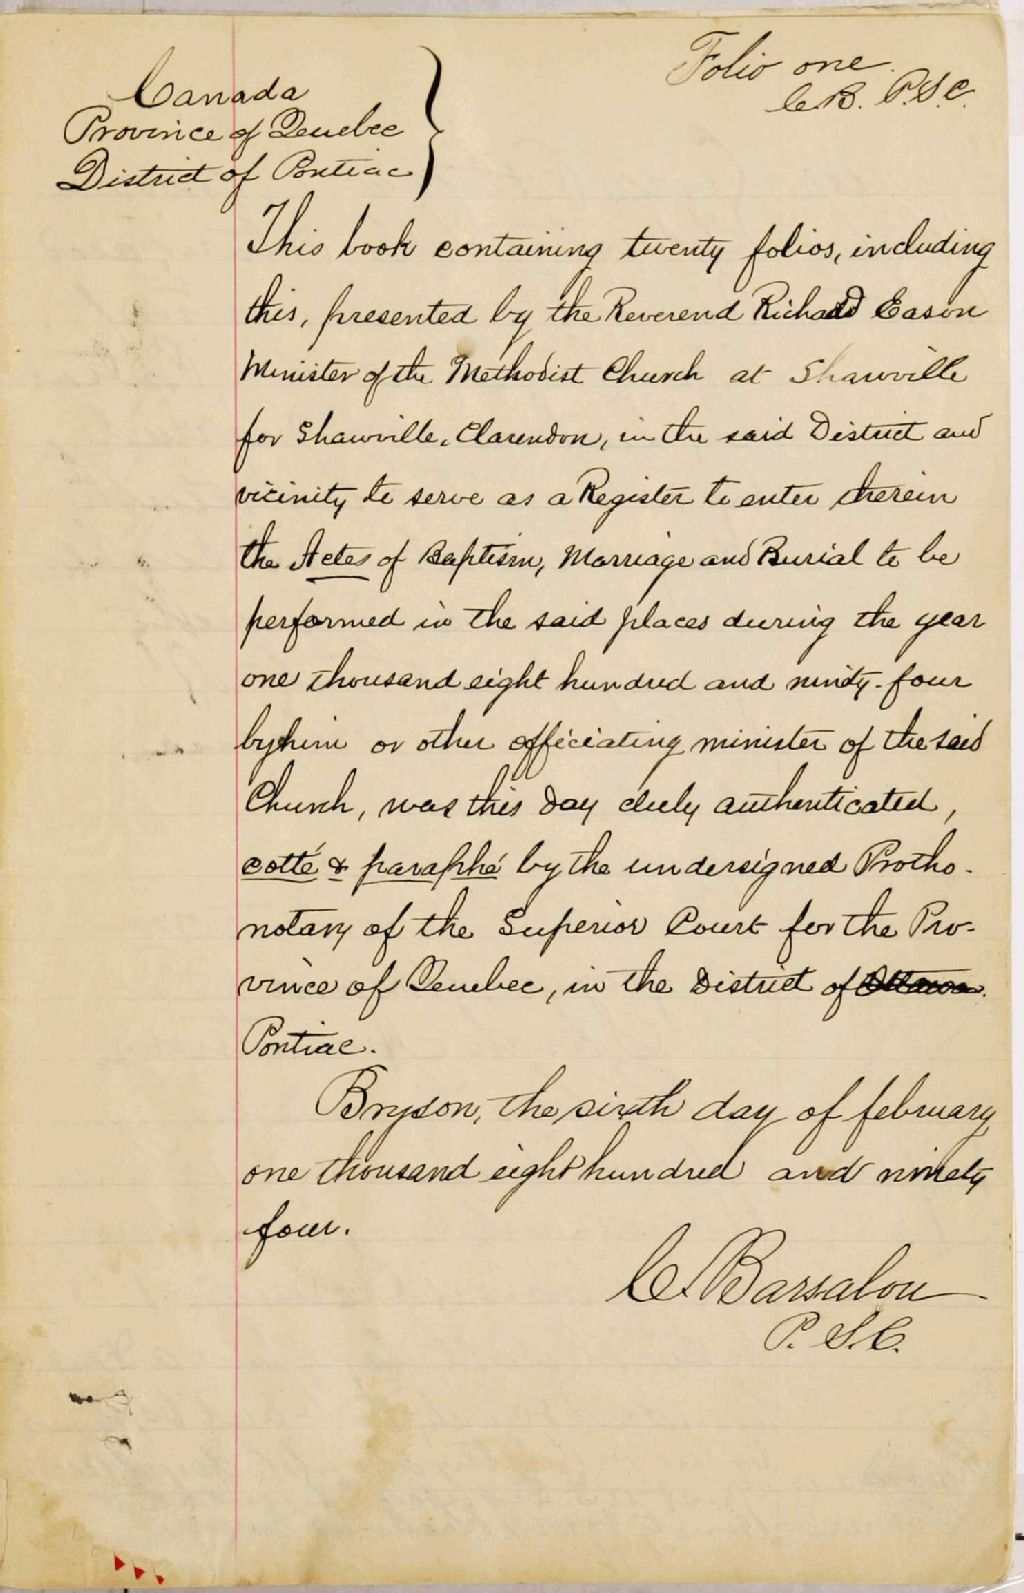 Folio one
C.B. P.S.C.
Canada
Province of Quebec
District of Pontiac
This book containing twenty folios, including
this, presented by the Reverend Richard Eason
Minister of the Methodist Church at Shawville
for Shawville, Clarendon, in the said District and
vicinity to serve as a Register to enter therein
the Actes of Baptism, Marriage and Burial to be
performed in the said places during the year
one thousand eight hundred and ninety-four
by him or other officiating minister of the said
Church, was this day duly authenticated,
cotté & paraphé by the undersigned Protho-
notary of the Superior Court for the Pro-
vince of Quebec, in the District of Ottawa
Pontiac.
Bryson, the sixth day of february
one thousand eight hundred and ninety
four.
C. Barsalou
P.S.C.